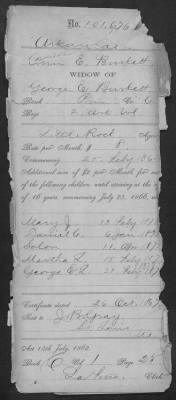 No. 101,676
Arkansas
Ann E. Burkett
WIDOW OF
George C. Burkett
Rank Priv. Co. C
Regt 2 Ark Vol
Little Rock Agency
Rate per Month $ 8
Commencing 25 Feby 186
Additional sum of $2 per Month for each
of the following children, until arriving at the age
of 16 years, commencing July 25, 1866,
Mary J. 13 Feby 187
Daniel C. 6 Jan 187
Solon 11 Apr 187
Martha L. 15 Feby 187
George 21 Feby 187
Certificate dated 26 Oct. 1867
Sent to J B Gray
St Louis
Mo
Act 14th July, 1862.
Book O Vol 1 Page 25
Clerk